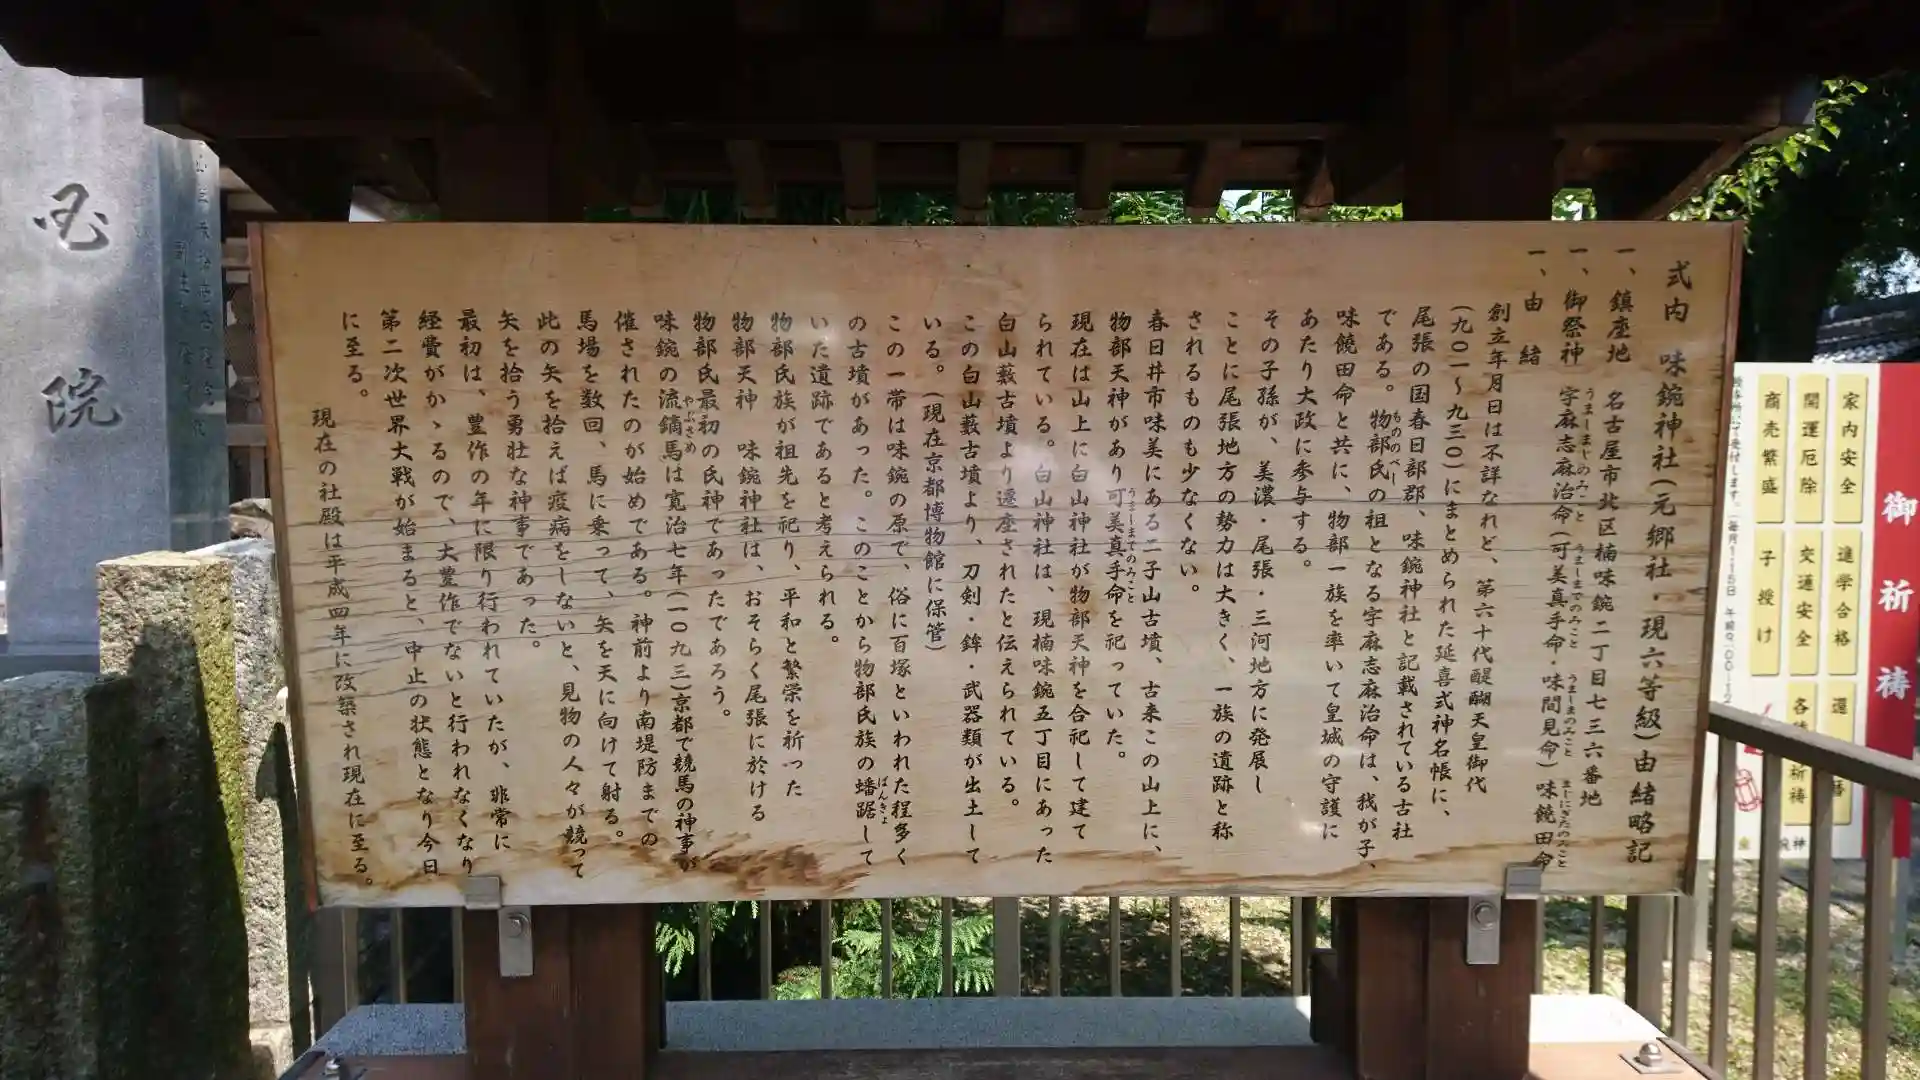 式内 味鋺神社(元郷社・現六等級)由緒略記
一、鎮座地 名古屋市北区楠味鋺二丁目七三六番地
一、御祭神 宇麻志麻治命(可美真手命・味間見命)味饒田命
うましまじのみこと うましまでのみこと うましまのみこと ましにぎたのみこと
一、由緒
創立年月日は不詳なれど、第六十代醍醐天皇御代
(九〇一〜九三〇)にまとめられた延喜式神名帳に、
尾張の国春日部郡、味鋺神社と記載されている古社
である。物部氏の祖となる宇麻志麻治命は、我が子、
もののべし
味饒田命と共に、物部一族を率いて皇城の守護に
あたり大政に参与する。
その子孫が、美濃・尾張・三河地方に発展し
ことに尾張地方の勢力は大きく、一族の遺跡と称
されるものも少なくない。
春日井市味美にある二子山古墳、古来この山上に、
物部天神があり可美真手命を祀っていた。
うましまでのみこと
現在は山上に白山神社が物部天神を合祀して建て
られている。白山神社は、現楠味鋺五丁目にあった
白山藪古墳より遷座されたと伝えられている。
この白山藪古墳より、刀剣・鉾・武器類が出土して
いる。(現在京都博物館に保管)
この一帯は味鋺の原で、俗に百塚といわれた程多く
の古墳があった。このことから物部氏族の蟠踞して
ばんきょ
いた遺跡であると考えられる。
物部氏族が祖先を祀り、平和と繁栄を祈った
物部天神 味鋺神社は、おそらく尾張に於ける
物部氏最初の氏神であったであろう。
味鋺の流鏑馬は寛治七年(一〇九三)京都で競馬の神事が
やぶさめ
催されたのが始めである。神前より南堤防までの
馬場を数回、馬に乗って、矢を天に向けて射る。
此の矢を拾えば疫病をしないと、見物の人々が競って
矢を拾う勇壮な神事であった。
最初は、豊作の年に限り行われていたが、非常に
経費がかゝるので、大豊作でないと行われなくなり
第二次世界大戦が始まると、中止の状態となり今日
に至る。
現在の社殿は平成四年に改築され現在に至る。
御祈祷
家内安全
進学合格
開運厄除
交通安全
商売繁盛
子授け
院